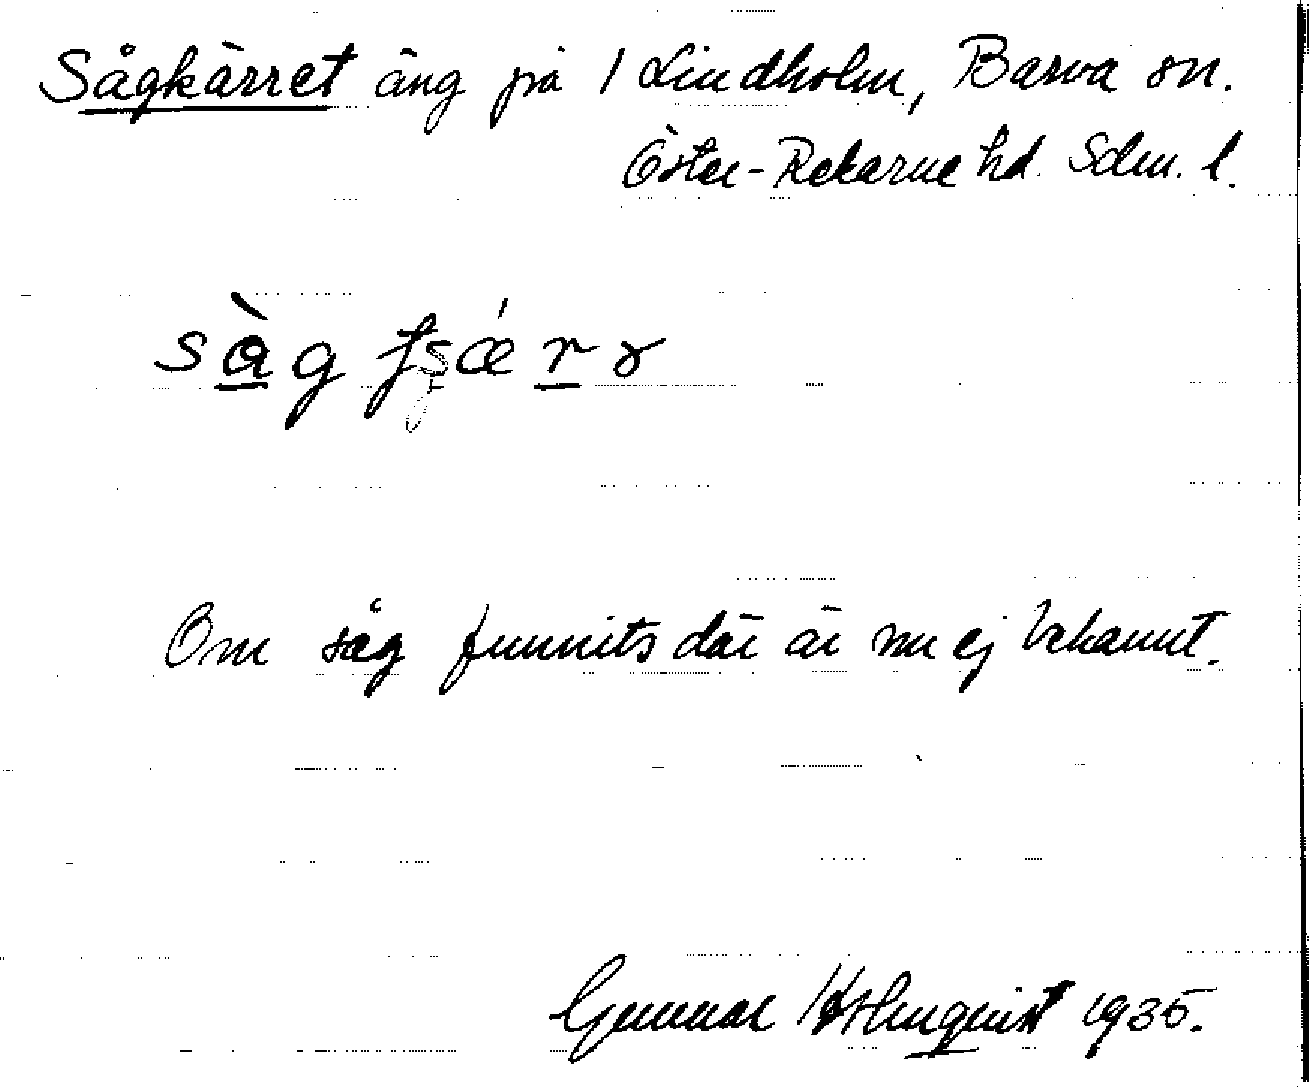 Sågkärret äng på 1 Lindholm, Barva sn.
Öster-Rekarne hd. Sdm. l.
såg
Om såg funnits där är nu ej bekannt.
Gunnar Holmquist 1935.